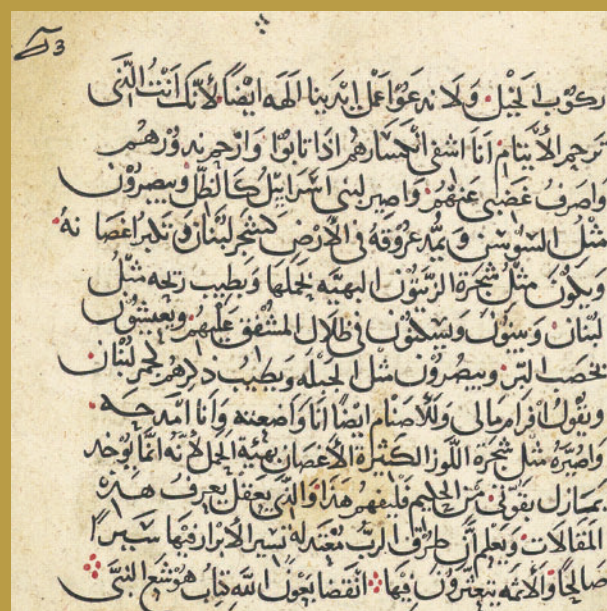 3
ركوب الخيل ولا ندعوا عمل ايدينا الهه ايضًا لأنك انت الذي
ترحم الأيتام انا اشفي انكسارهم اذا تابوا وارحم ندورهم
واصرف غضبي عنهم واصير لبني اسراييل كالظل ويبصرون
مثل السوسن ويمد عروقه في الأرض كشجر لبنان وتكبر اغصانه
ويكون مثل شجرة الزيتون البهيه بحملها ويطيب ريحه مثل
لبنان ويبنون ويسكنون في ظلال المشفق عليهم ويعيشون
بخصب البر ويبصرون مثل الجبله ويطيب ذكرهم كخمر لبنان
ويقول افرام مالي وللأصنام ايضًا انا واضعته وانا امدحه
واصيره مثل شجرة اللوز الكثيرة الأغصان بهئية الحمل لأنه انما يوجد
بمنازل بقوتي من الحليم فليفهم هذا والذي يعقل يعرف هذه
المقالات ويعلم أن طرق الرب معتدله تسير الأبرار فيها سيرًا
صالحًا والأثمه يتعثرون فيها انقضا بعون الله كتاب هوشع النبي